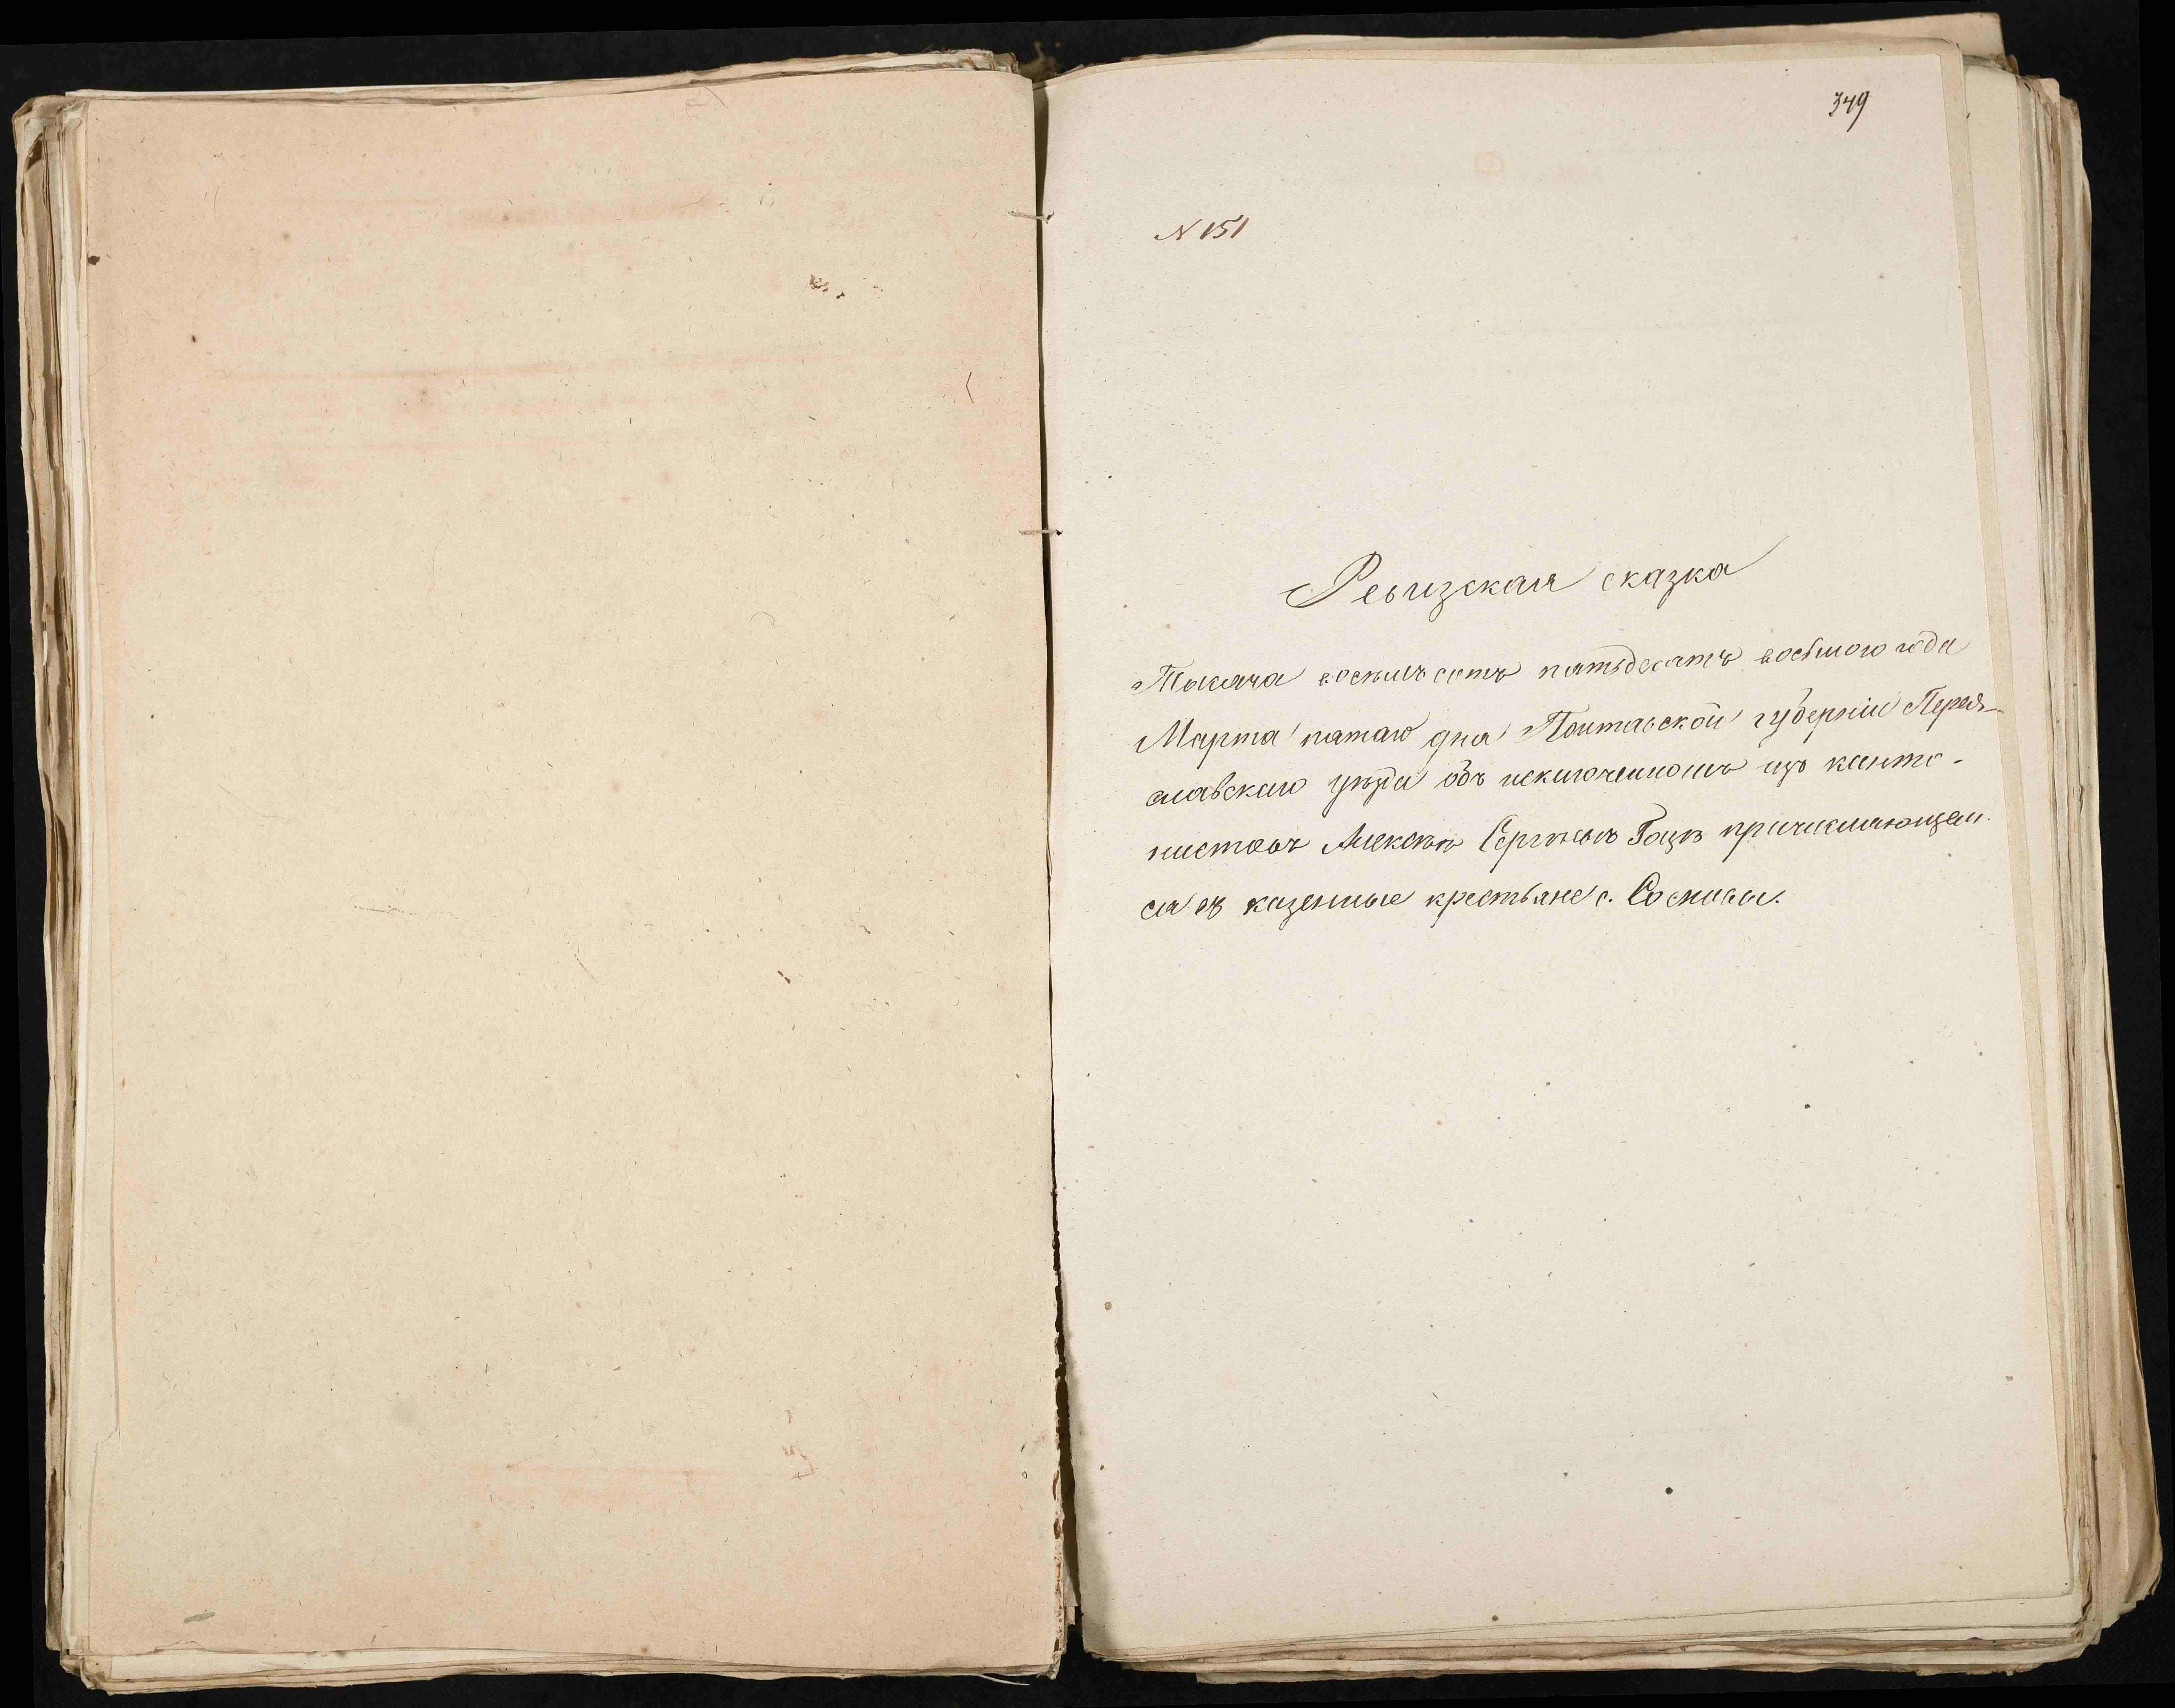 349
N 151
Ревизская сказка
Тысяча восемьсотъ пятьдесятъ восьмого года
Марта пятаго дня Полтавской губерніи Перея-
славскаго уѣзда объ исключенномъ изъ канто-
нистовъ Алексѣѣ Сергѣевѣ Гоцѣ причисляющем-
ся въ казенные крестьяне с. Сосновы.